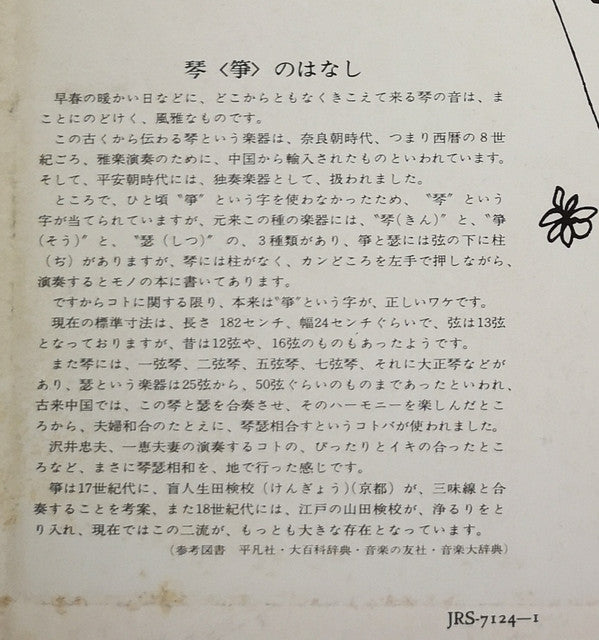 琴〈箏〉のはなし
早春の暖かい日などに、どこからともなくきこえて来る琴の音は、ま
ことにのどけく、風雅なものです。
この古くから伝わる琴という楽器は、奈良朝時代、つまり西暦の8世
紀ごろ、雅楽演奏のために、中国から輸入されたものといわれています。
そして、平安朝時代には、独奏楽器として、扱われました。
ところで、ひと頃〝箏〟という字を使わなかったため、〝琴〟という
字が当てられていますが、元来この種の楽器には、〝琴(きん)〟と、〝箏
(そう)〟と、〝瑟(しつ)〟の、3種類があり、箏と瑟には弦の下に柱
(ぢ)がありますが、琴には柱がなく、カンどころを左手で押しながら、
演奏するとモノの本に書いてあります。
ですからコトに関する限り、本来は〝箏〟という字が、正しいワケです。
現在の標準寸法は、長さ 182センチ、幅24センチぐらいで、弦は13弦
となっておりますが、昔は12弦や、16弦のものもあったようです。
また琴には、一弦琴、二弦琴、五弦琴、七弦琴、それに大正琴などが
あり、瑟という楽器は25弦から、50弦ぐらいのものまであったといわれ、
古来中国では、この琴と瑟を合奏させ、そのハーモニーを楽しんだとこ
ろから、夫婦和合のたとえに、琴瑟相合すというコトバが使われました。
沢井忠夫、一恵夫妻の演奏するコトの、ぴったりとイキの合ったとこ
ろなど、まさに琴瑟相和を、地で行った感じです。
箏は17世紀代に、盲人生田検校(けんぎょう)(京都)が、三味線と合
奏することを考案、また18世紀代には、江戸の山田検校が、浄るりをと
り入れ、現在ではこの二流が、もっとも大きな存在となっています。
(参考図書 平凡社・大百科辞典・音楽の友社・音楽大辞典)
JRS-7124—1